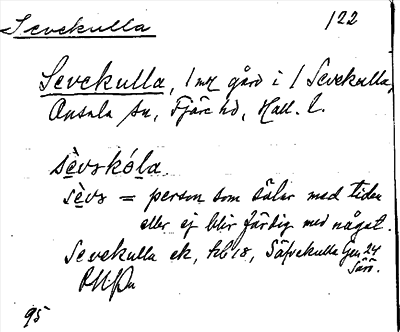 Sevekulla 122
Sevekulla, 1 mtl gård i 1 Sevekulla,
Onsala sn, Fjäre hd, Hall. l.
sèvskóla
sèvs = person som sölar med tiden
eller ej blir färdig med något.
Sevekulla ek, 18, Säfvekulla Gen 24
95